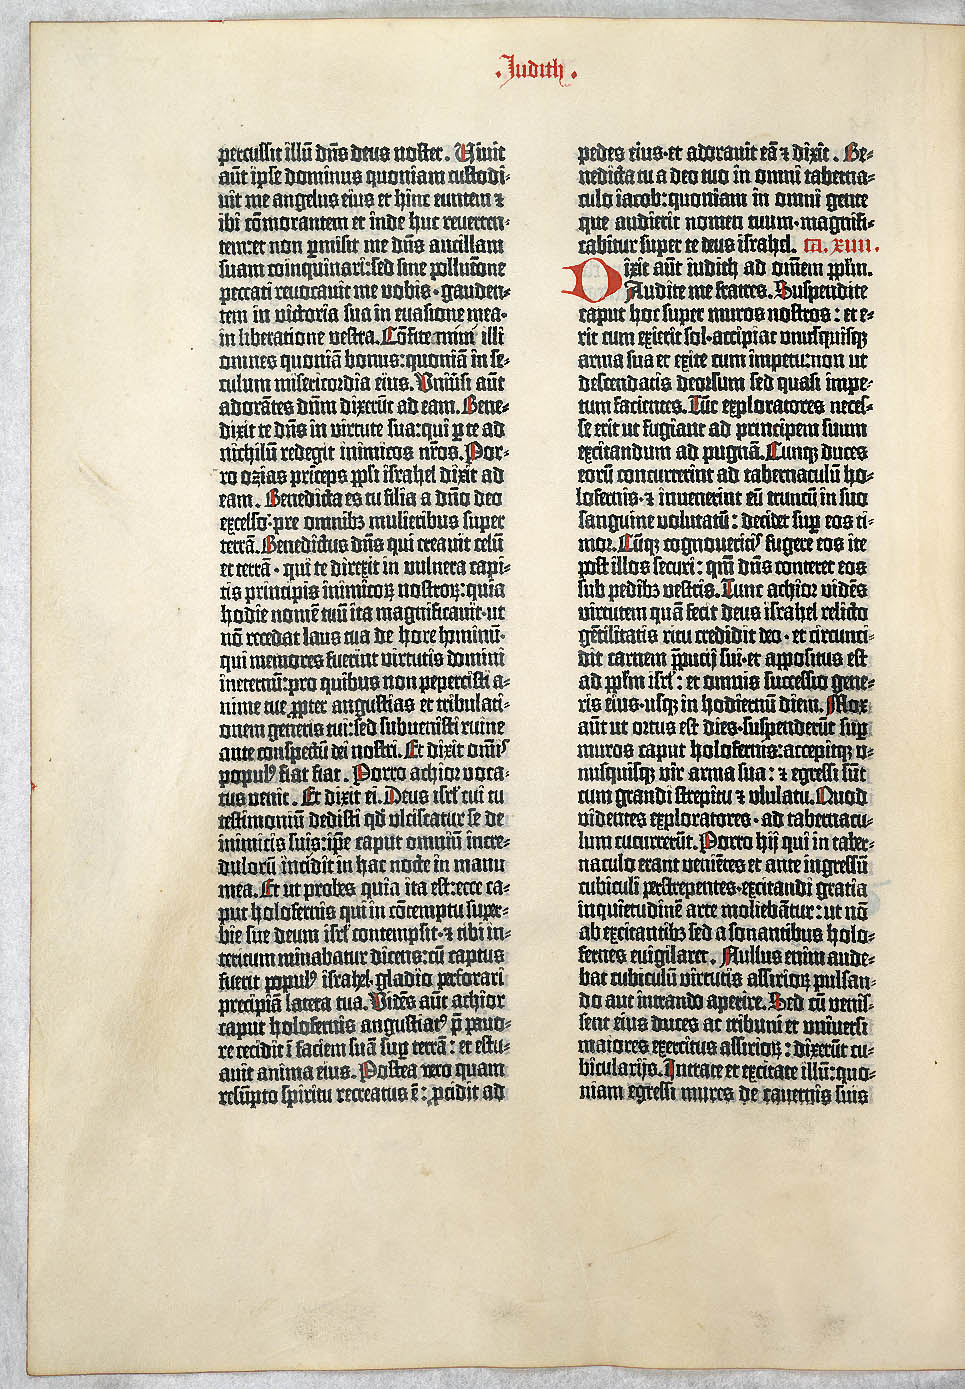 .Judith.
percussit illū dn̄s deus noster. Vivit
aūt ip̄e dominus quoniam custodi-
vit me angelus eius et hinc euntem ⁊
ibi cōmorantem et inde huc reverten-
tem: et non ꝑmisit me dn̄s ancillam
suam coinquinari: sed sine pollutōne
peccati revocavit me vobis · gauden-
tem in victoria sua in evasione mea ·
in liberatione vestra. Cōfitemini illi
omnes quoniā bonus: quoniā in se-
culum misericordia eius. Vniv̄si aūt
adorātes dn̄m dixerūt ad eam. Bene-
dixit te dn̄s in virtute sua: qui ꝑ te ad
nichilū redegit inimicos nr̄os. Por-
ro ozias prīceps ppl̄i israhel dixit ad
eam. Benedicta es tu filia a dn̄o deo
excelso: pre omnibꝫ mulieribus super
terrā. Benedictus dn̄s qui creavit celū
et terrā · qui te direxit in vulnera capi-
tis principis inimicoꝝ nostroꝝ: quia
hodie nomē tuū ita magnificavit · ut
nō recedat laus tua de hore hominū ·
qui memores fuerint virtutis domini
ineternū: pro quibus non pepercisti a-
nime tue ꝓpter angustias et tribulati-
onem generis tui: sed subvenisti ruine
ante conspectū dei nostri. Et dixit omīs
populꝰ fiat fiat. Porro achior voca-
tus venit. Et dixit ei. Deus isrl̄ cui tu
testimoniū dedisti qd̄ ulciscatur se de
inimicis suis: ip̄e caput omniū incre-
dulorū incidit in hac nocte in manu
mea. Et ut probes quia ita est: ecce ca-
put holofernis qui in cōtemptu super-
bie sue deum isrl̄ contempsit · ⁊ tibi in-
teritum minabatur dicens: cū captus
fuerit populꝰ israhel · gladio perforari
precipiā latera tua. Vidēs aūt achior
caput holofernis angustiatꝰ p̄ pavo-
re cecidit ī faciem suā suꝑ terrā: et estu-
avit anima eius. Postea vero quam
resūpto spiritu recreatus ē: ꝓcidit ad
pedes eius · et adoravit eā ⁊ dixit. Be-
nedicta tu a deo tuo in omni taberna-
culo iacob: quoniam in omni gente
que audierit nomen tuum · magnifi-
cabitur super te deus israhel. ca. xiiii.
Dixit aūt iudith ad om̄em ppl̄m.
Audite me fratres. Suspendite
caput hoc super muros nostros: et e-
rit cum exierit sol · accipiat unusquisqꝫ
arma sua et exite cum impetu: non ut
descendatis deorsum sed quasi impe-
tum facientes. Tūc exploratores neces-
se erit ut fugiant ad principem suum
excitandum ad pugnā. Cunqꝫ duces
eorū concurrerint ad tabernaculū ho-
lofernis · ⁊ invenerint eū truncū in suo
sanguine volutatū: decidet suꝑ eos ti-
mor. Cūqꝫ cognoveritis fugere eos ite
post illos securi: qm̄ dn̄s conteret eos
sub pedibꝫ vestris. Tunc achior vidēs
virtutem quā fecit deus israhel relicto
gētilitatis ritu credidit deo · et circunci-
dit carnem p̄pucij sui · et appositus est
ad ppl̄m isrl̄: et omnis successio gene-
ris eius · usqꝫ in hodiernū diem. Mox
aūt ut ortus est dies · suspenderūt suꝑ
muros caput holofernis: accepitqꝫ u-
nusquisqꝫ vir arma sua: ⁊ egressi sūt
cum grandi strepitu ⁊ ululatu. Quod
videntes exploratores · ad tabernacu-
lum cucurrerūt. Porro hij qui in taber-
naculo erant veniētes et ante ingressū
cubiculi perstrepentes · excitandi gratia
inquietudinē arte moliebātur: ut nō
ab excitantibꝫ sed a sonantibus holo-
fernes evigilaret. Nullus enim aude-
bat cubiculū virtutis assirioꝝ pulsan-
do aut intrando aperire. Sed cū venis-
sent eius duces ac tribuni et universi
maiores exercitus assirioꝝ: dixerūt cu-
bicularijs. Intrate et excitate illū: quo-
niam egressi mures de cavernis suis